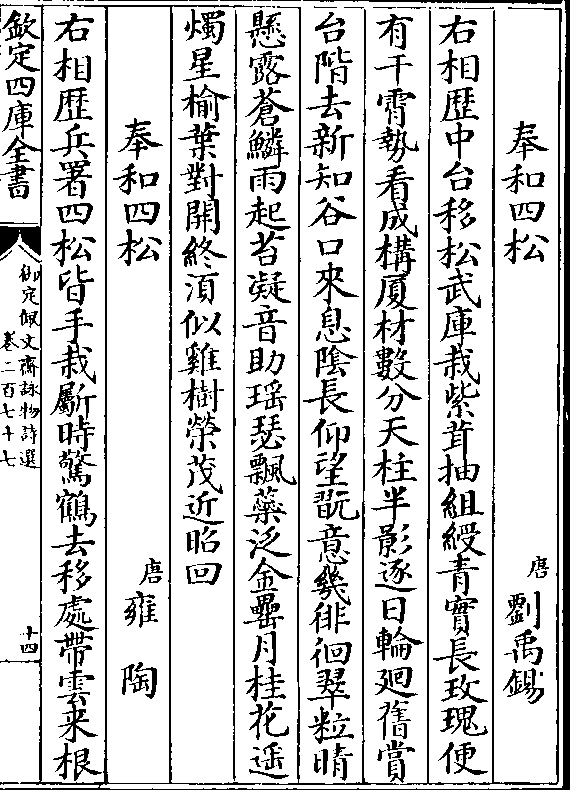 奉和四松
唐劉禹錫
右相歴中台移松武庫栽紫茸抽組綬青實長玫瑰便
有干霄勢看成構厦材數分天柱半影逐日輪廻舊賞
台階去新知谷口來息陰長仰望翫意幾徘徊翠粒晴
懸露蒼鱗雨起苔凝音助瑶瑟飄蘂泛金罍月桂花遥
燭星榆葉對開終湏似雞樹榮茂近昭回
奉和四松
唐雍陶
右相歴兵署四松皆手栽劚時驚鶴去移處帶雲来根
欽定四庫全書
御定佩文齋詠物詩選
卷二百七十七
十四